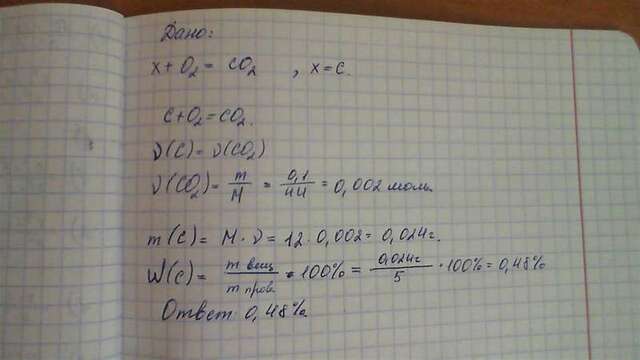 Дано:
x + O₂ = CO₂ , x = C.
C + O₂ = CO₂.
ν(C) = ν(CO₂)
ν(CO₂) = m/M = 0,1/44 = 0,002 моль.
m(C) = M · ν = 12 · 0,002 = 0,024г.
W(C) = m вещ/m пров. · 100% = 0,024г/5 · 100% = 0,48%
Ответ: 0,48%